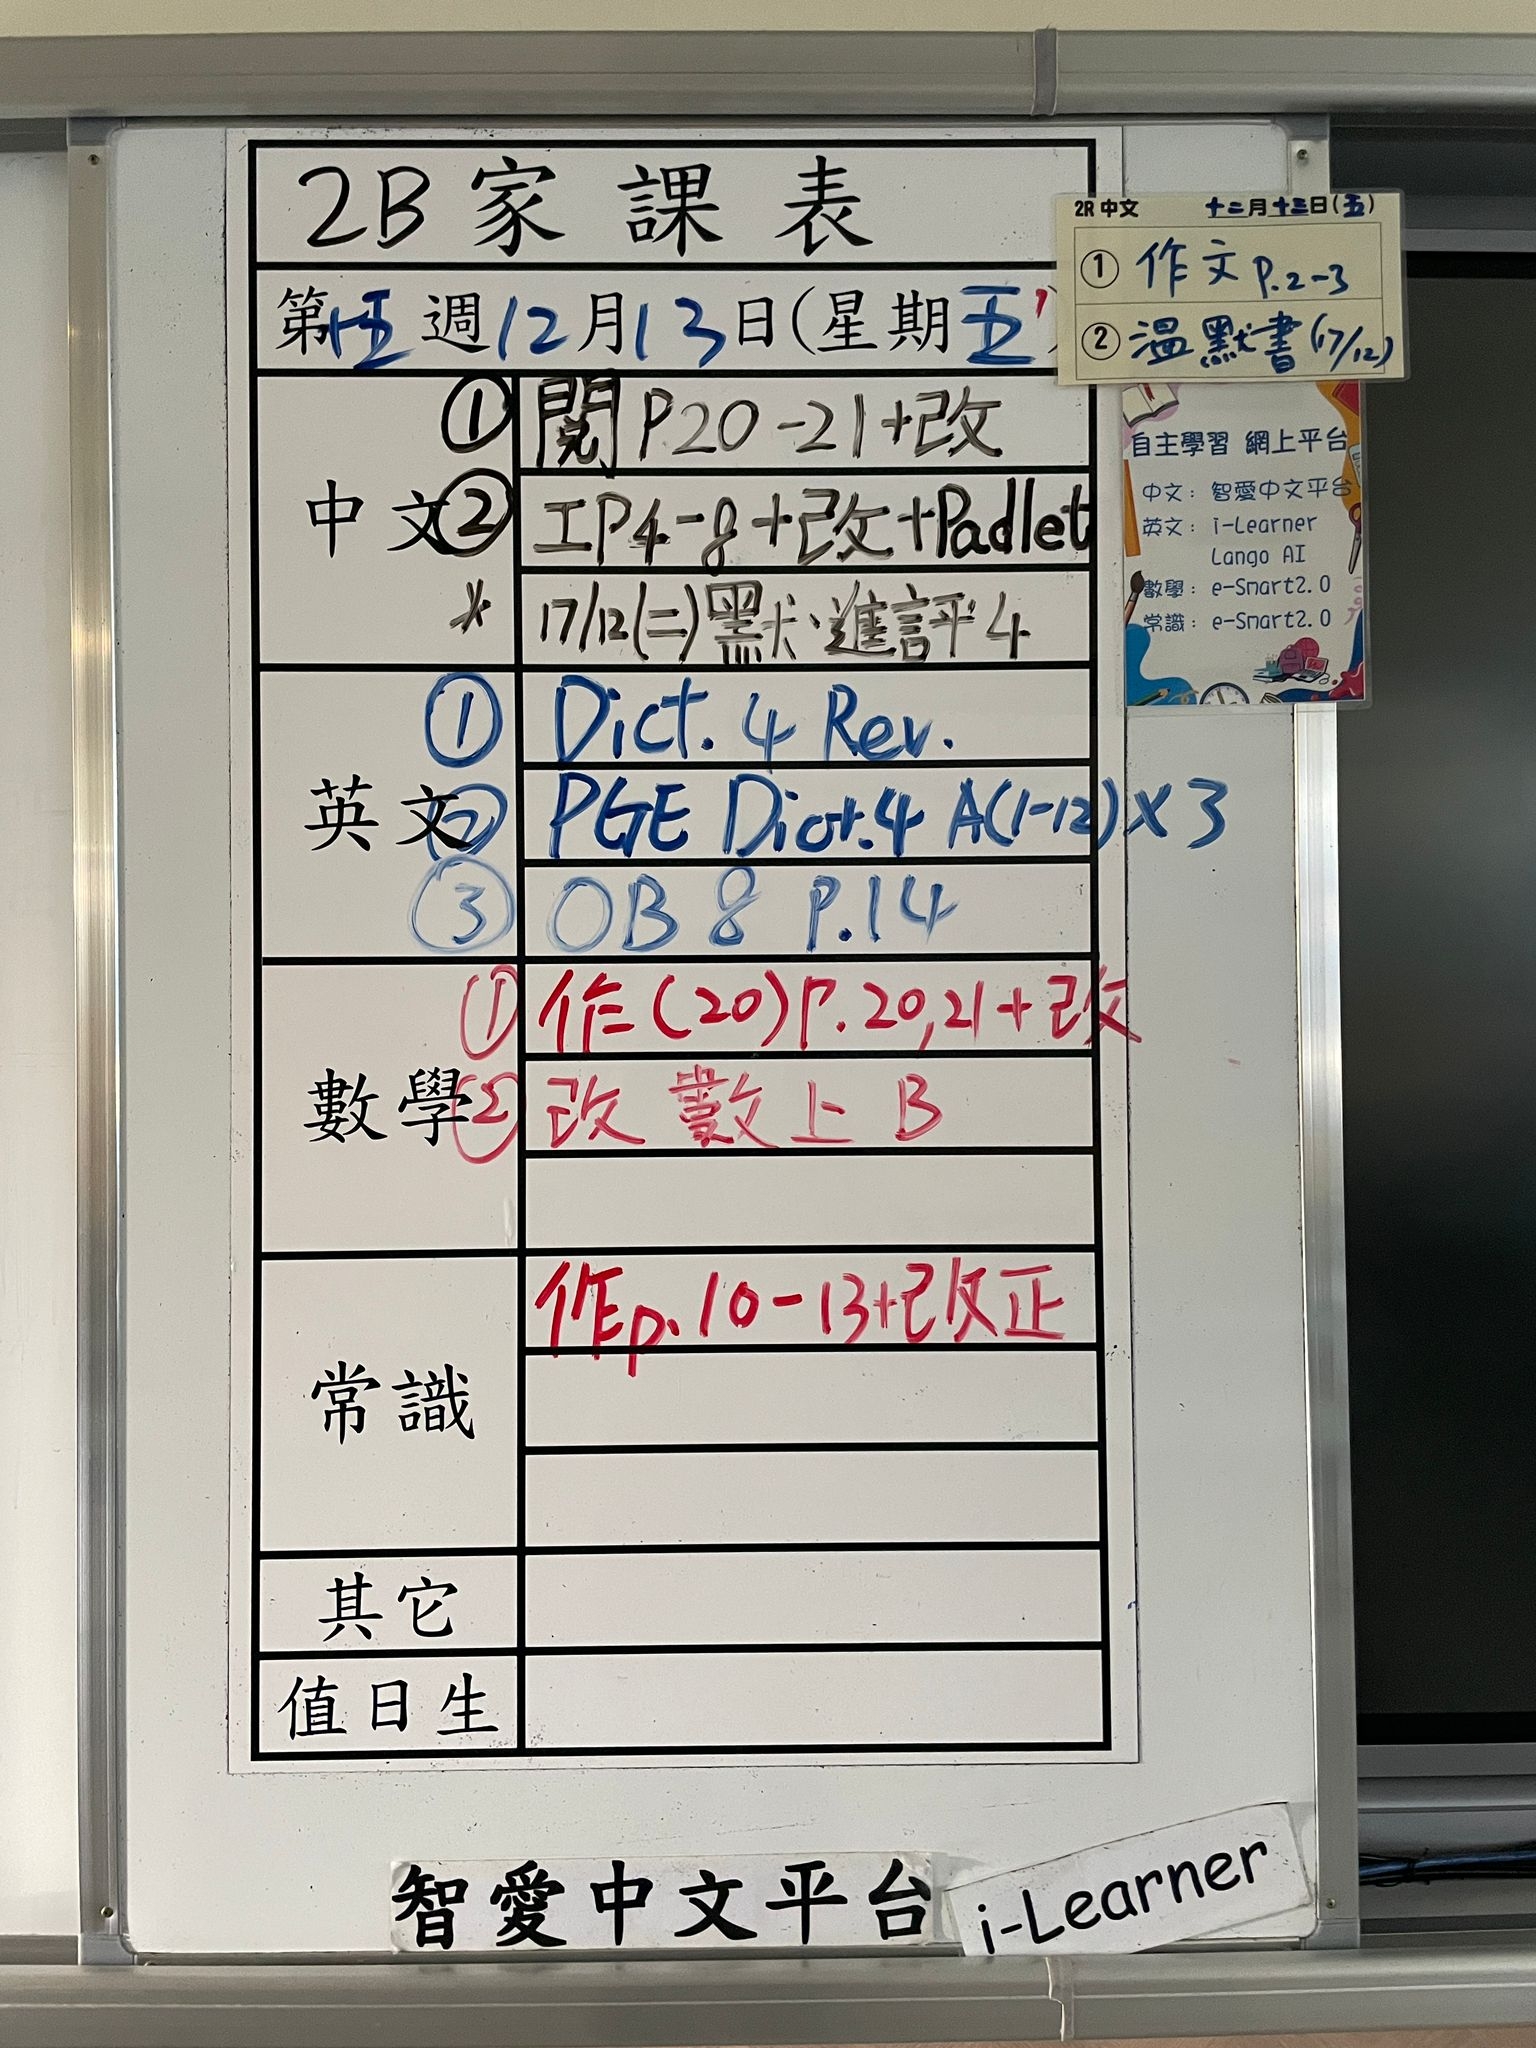 2B家課表
第十五週12月13日(星期五)
中文
① 閱P20-21+改
② 工P4-8+改+Padlet
* 17/12(二)默、進評4
英文
① Dict. 4 Rev.
② PGE Dict.4 A(1-12)×3
③ OB 8 P.14
數學
① 作(20)P.20,21+改
② 改 數上B
常識
作p.10-13+改正
其它
值日生
2R 中文 十二月十三日(五)
① 作文 P.2-3
② 溫默書(17/12)
自主學習 網上平台
中文：智愛中文平台
英文：i-Learner
Lango AI
數學：e-Smart2.0
常識：e-Smart2.0
智愛中文平台
i-Learner